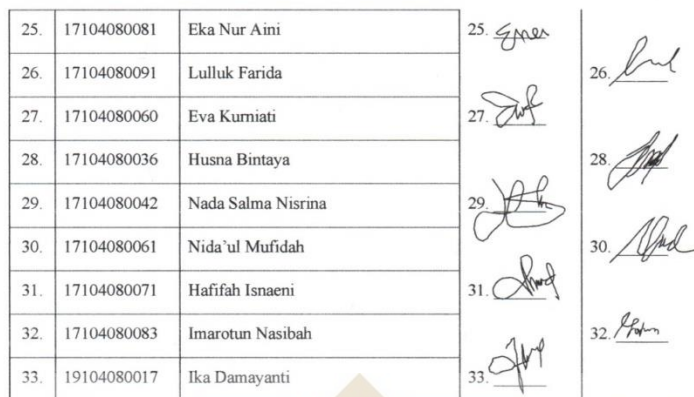 25. 17104080081 Eka Nur Aini 25.
26. 17104080091 Lulluk Farida 26.
27. 17104080060 Eva Kurniati 27.
28. 17104080036 Husna Bintaya 28.
29. 17104080042 Nada Salma Nisrina 29.
30. 17104080061 Nida'ul Mufidah 30.
31. 17104080071 Hafifah Isnaeni 31.
32. 17104080083 Imarotun Nasibah 32.
33. 19104080017 Ika Damayanti 33.